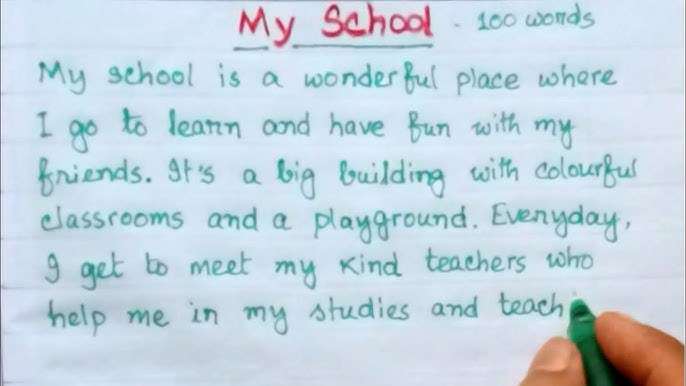 My School - 100 words
My school is a wonderful place where
I go to learn and have fun with my
friends. It's a big building with colourful
classrooms and a playground. Everyday,
I get to meet my kind teachers who
help me in my studies and teach